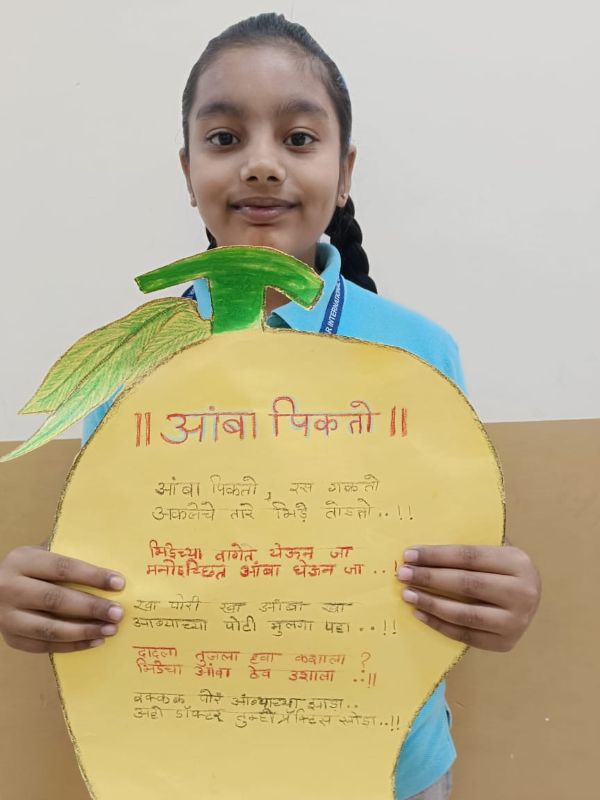 R INTERNATIONAL
|| आंबा पिकतो ||
आंबा पिकतो, रस गळतो
अकलेचे तारे भिडे तोडतो..!!
भिडेच्या बागेत येऊन जा
मनोइच्छित आंबा घेऊन जा ..!
खा पोरी खा आंबा खा
आंब्याच्या पोटी मुलगा पहा ..!!
दादला तुजला हवा कशाला ?
भिडेचा आंबा ठेव उशाला ..!!
पोरं आंब्याच्या झाडा..
अहो डॉक्टर तुम्ही प्रॅक्टिस सोडा..!!